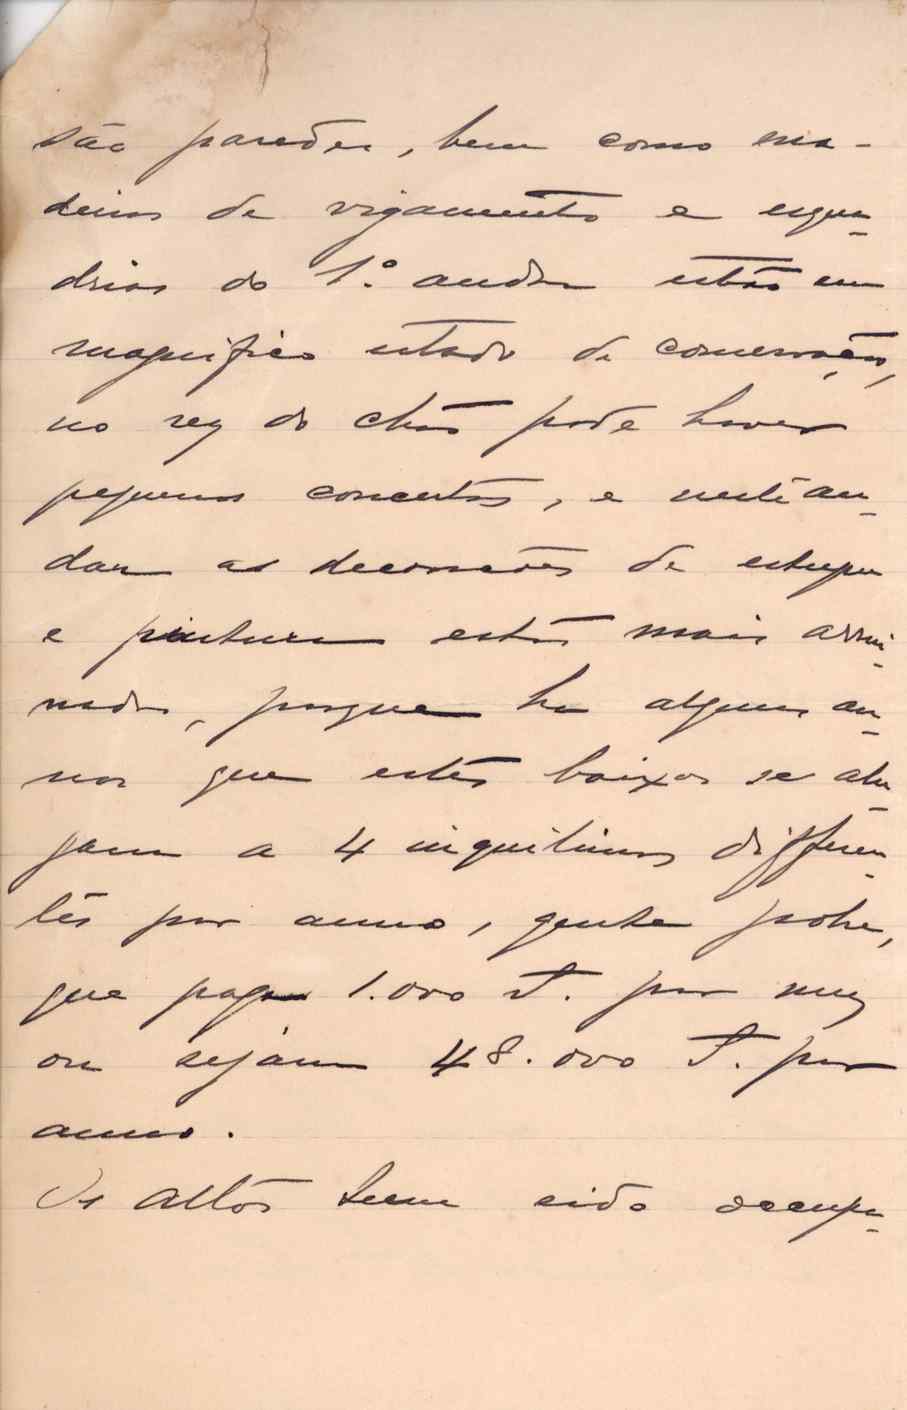 são paredes, bem como ma-
deiras de vigamento e esqua-
drias do 1.º andar estão em
magnifico estado de conservação,
no rez do chão pode haver
pequenos concertos, e neste an-
dar as decorações de estuque
e pintura estão mais arrui-
nadas, porque ha alguns an-
nos que estes baixos se alu-
gam a 4 inquilinos differen-
tes por anno, gente pobre,
que paga 1.000 rs. por mez
ou sejam 48.000 rs. por
anno.
Os altos teem sido occupa-